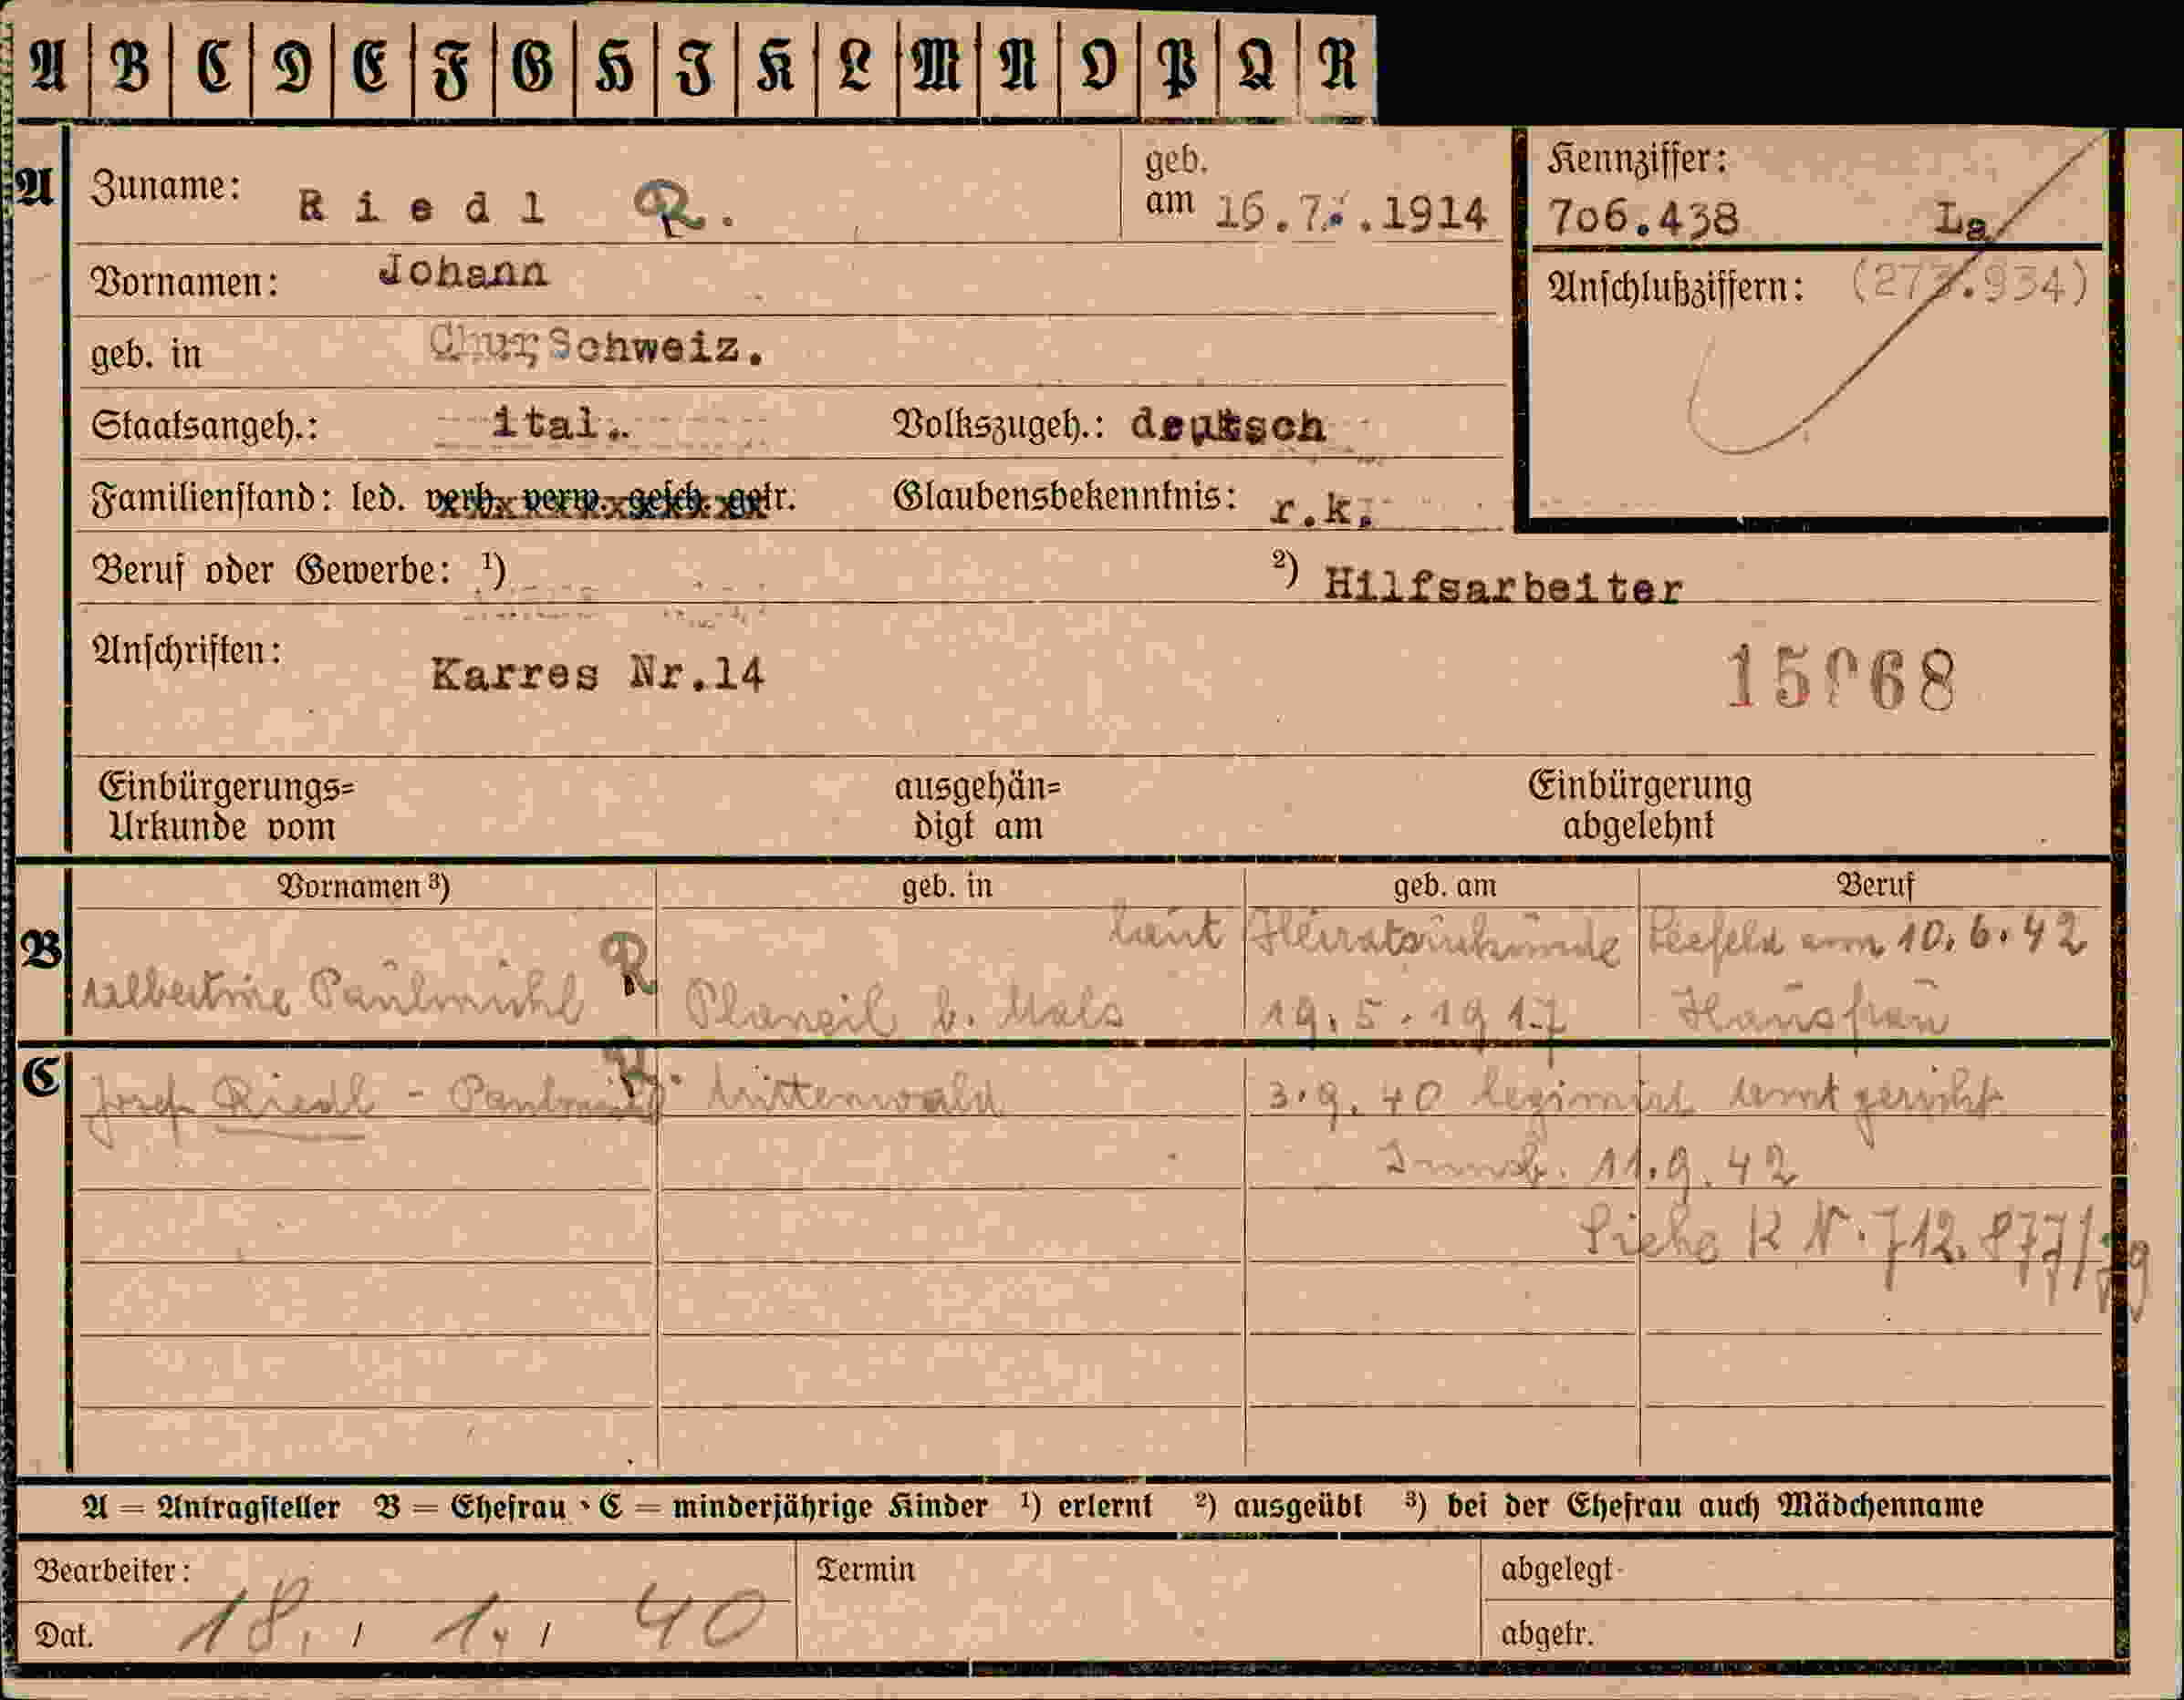 A B C D E F G H I K L M N O P Q R
A Zuname: Riedl R. geb. am 16.7.1914 Kennziffer: 706.438 La
Vornamen: Johann Anschlußziffern: (273.934)
geb. in Chur, Schweiz.
Staatsangeh.: ital. Volkszugeh.: deutsch
Familienstand: led. verh. verw. gesch. getr. Glaubensbekenntnis: r.k.
Beruf oder Gewerbe: ¹) ²) Hilfsarbeiter
Anschriften: Karres Nr.14
Einbürgerungs= ausgehän= Einbürgerung
Urkunde vom digt am abgelehnt
Vornamen ³) geb. in geb. am Beruf
B laut Heiratsurkunde Seefeld vom 10.6.42
Albertine Paulmichl R Planeil b. Mals 19.5.1917 Hausfrau
C Josef Riedl - R. Mittenwald 3.9.40 legimirt Amtgericht
Innsb. 11.9.42
Siehe K N. 712.877/79
A = Antragsteller B = Ehefrau C = minderjährige Kinder ¹) erlernt ²) ausgeübt ³) bei der Ehefrau auch Mädchenname
Bearbeiter: Termin abgelegt
Dat. 18. / 1. / 40 abgetr.